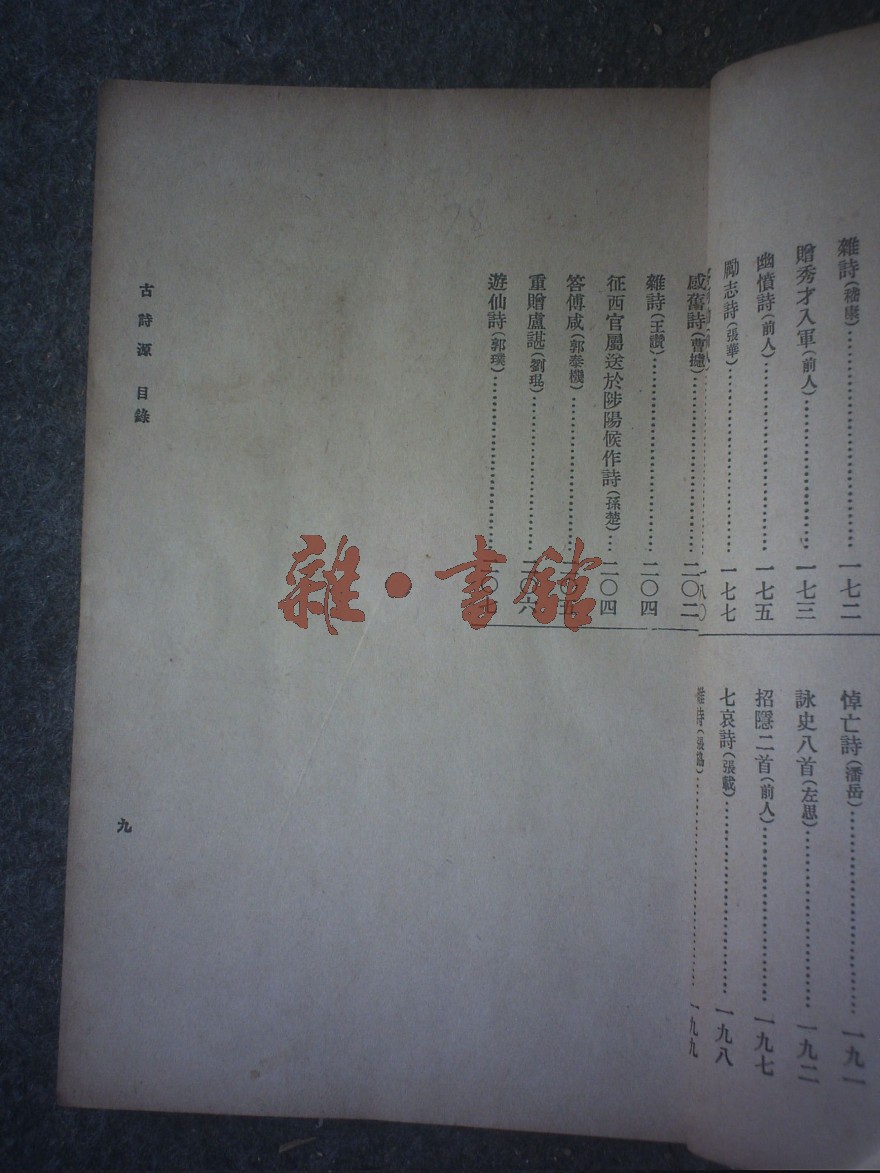 雜詩(嵇康)……一七二
贈秀才入軍(前人)……一七三
幽憤詩(前人)……一七五
勵志詩(張華)……一七七
悼亡詩(潘岳)……一九一
詠史八首(左思)……一九二
招隱二首(前人)……一九七
七哀詩(張載)……一九八
雜詩(張協)……一九九
感舊詩(曹攄)……二〇二
雜詩(王讚)……二〇四
征西官屬送於陟陽候作詩(孫楚)……二〇四
答傅咸(郭泰機)……二〇五
重贈盧諶(劉琨)……二〇六
遊仙詩(郭璞)……二〇七
古詩源 目錄
九
雜·書館